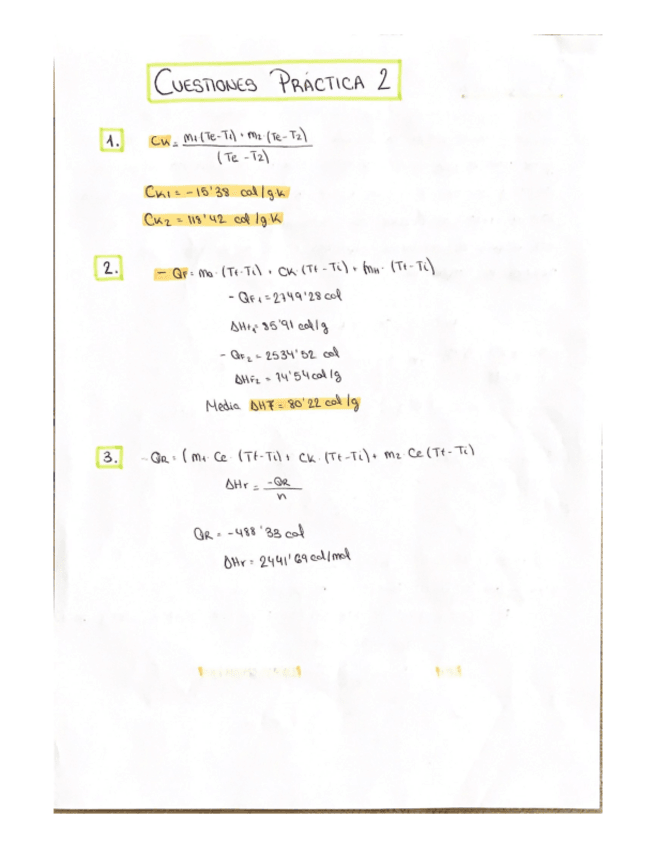 CUESTIONES PRÁCTICA 2
1. CK = m1(Te-Ti) + m2(Te-T2)
(Te-T2)
CK1 = -15'38 cal/g.k
CK2 = 118'42 cal/gK
2. - QF = m0·(Tf-Ti) + CK·(Tf-Ti) + mH·(Tf-Ti)
- QF1 = 2749'28 cal
ΔHF1 = 85'91 cal/g
- QF2 = 2534'52 cal
ΔHF2 = 74'54 cal/g
Media ΔHF = 80'22 cal/g
3. - QR = (m1·Ce·(Tf-Ti) + CK·(Tf-Ti) + m2·Ce(Tf-Ti)
ΔHr = -QR
n
QR = -488'33 cal
ΔHr = 2441'69 cal/mol